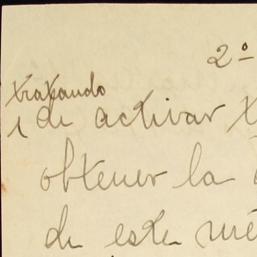 2º
tratando
de activar
obtener la
de este mé